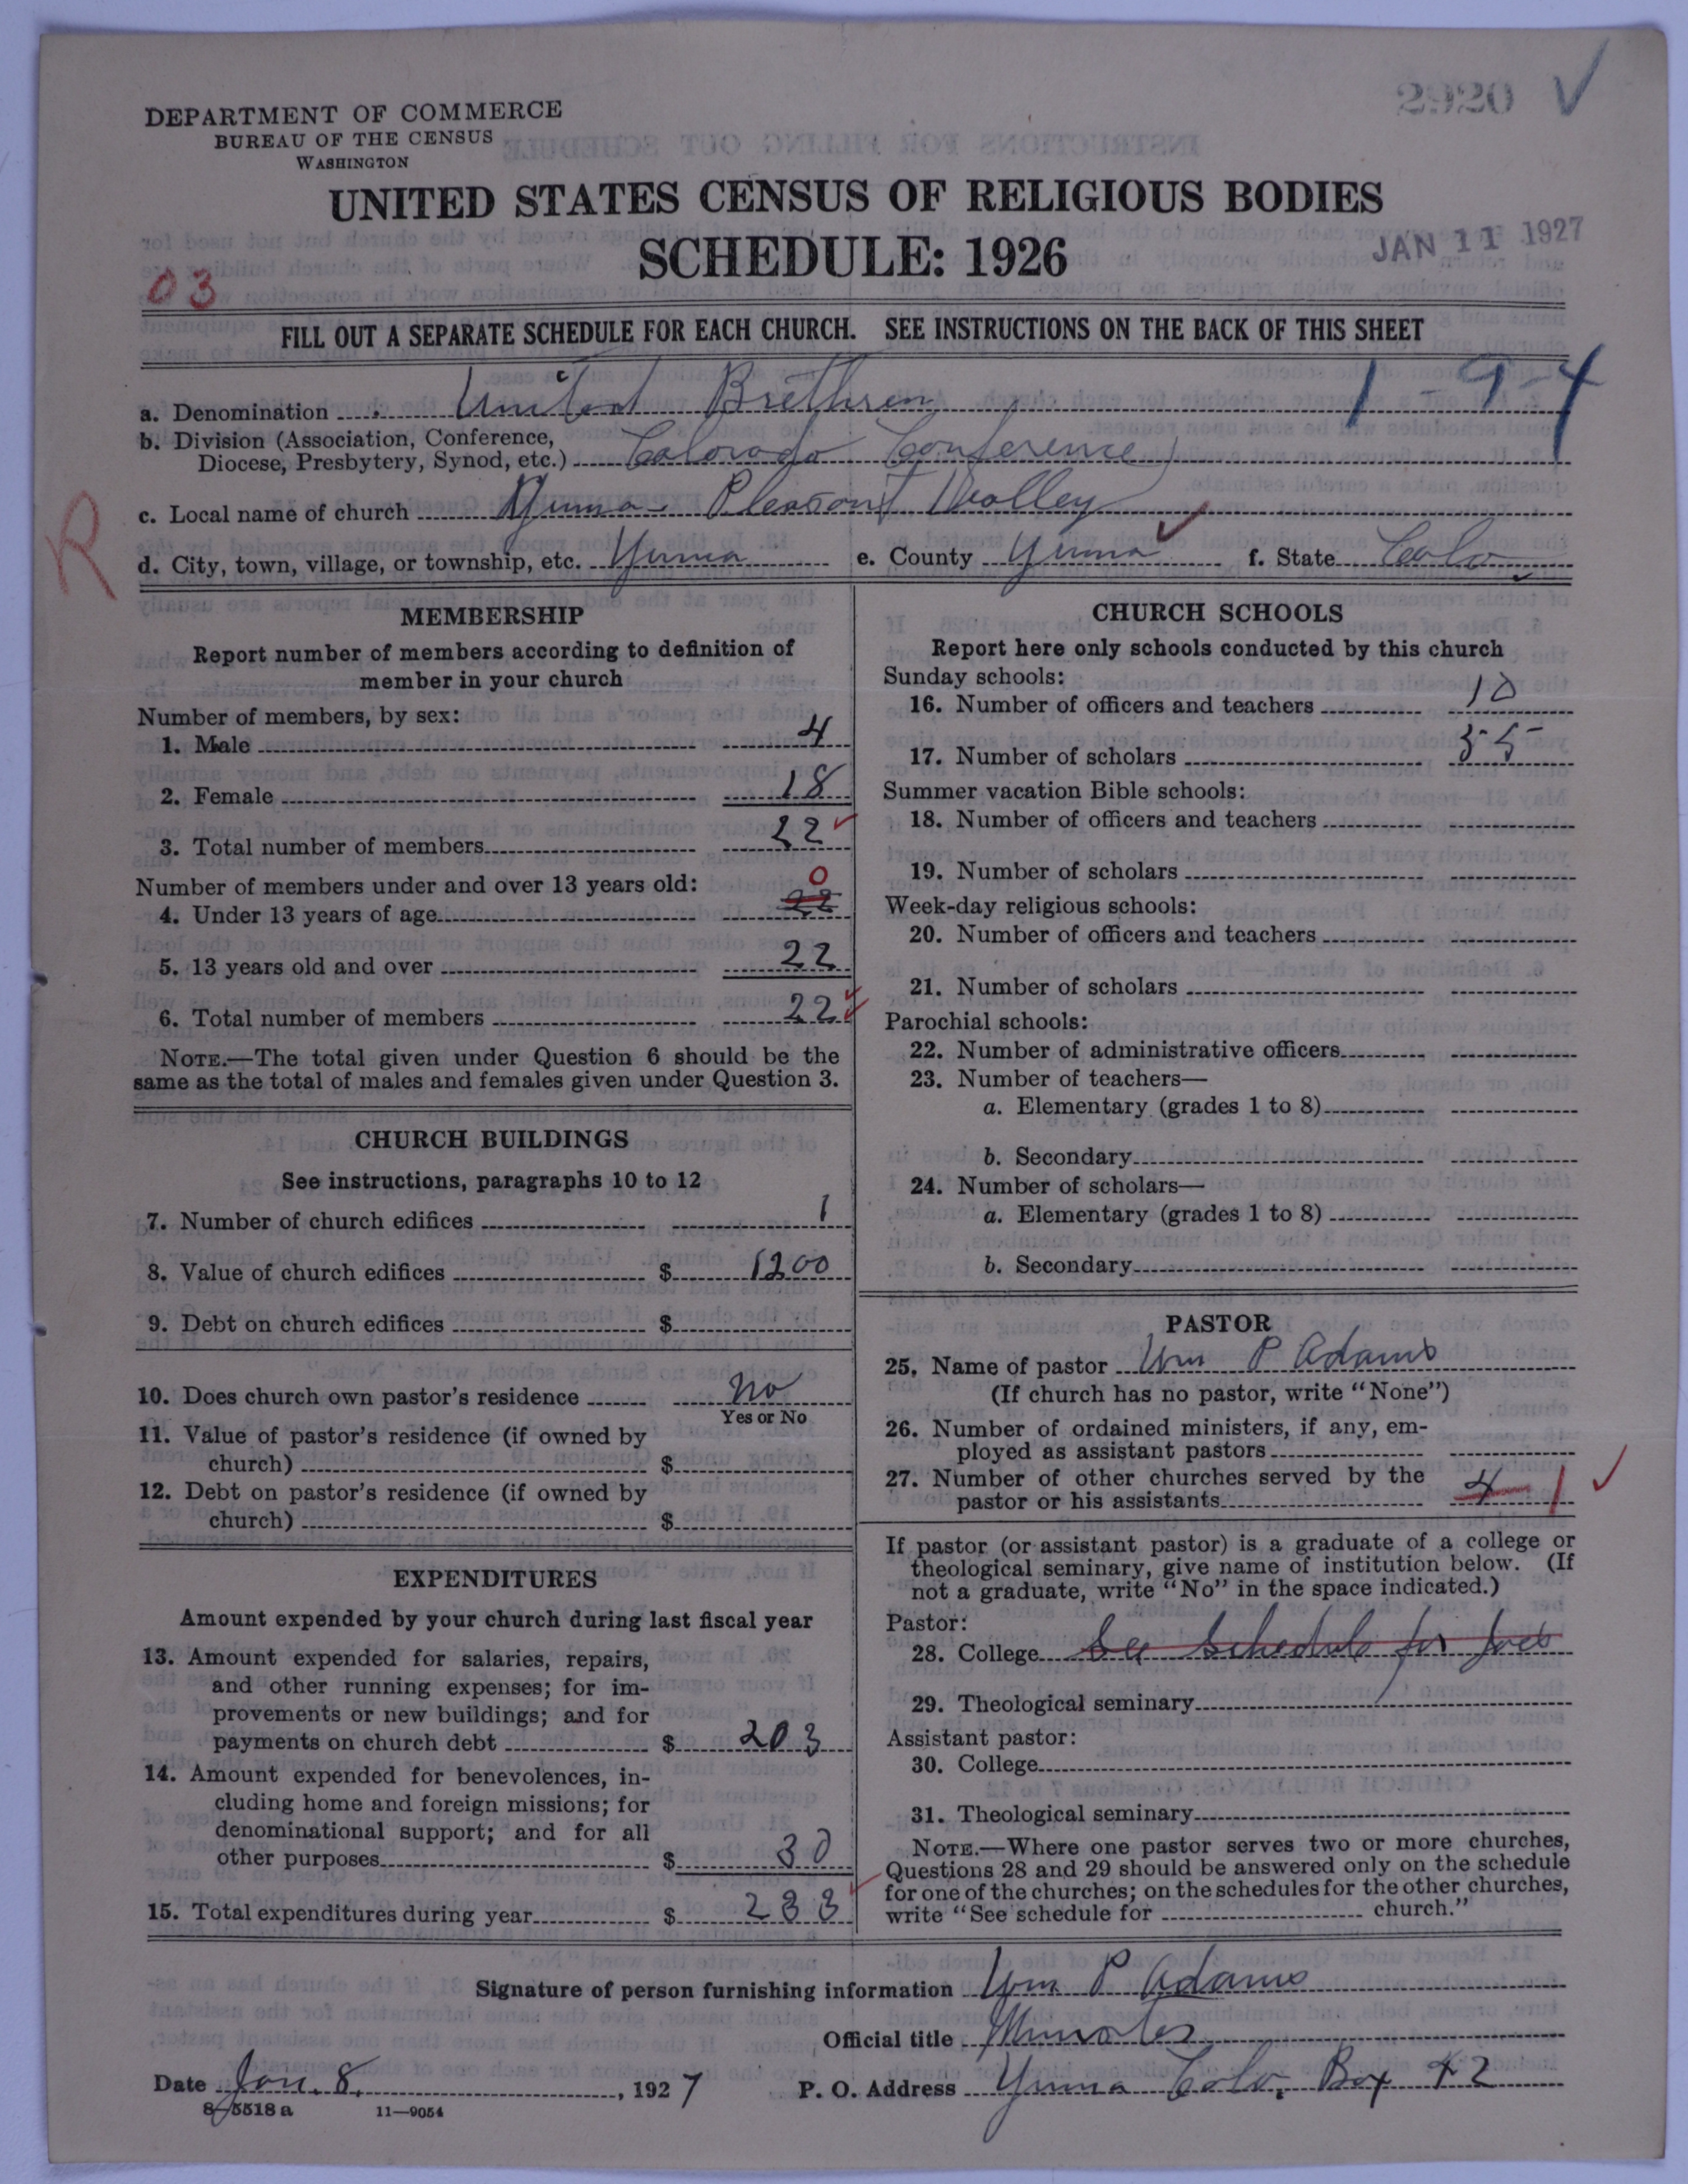 2920 ✓
DEPARTMENT OF COMMERCE
BUREAU OF THE CENSUS
WASHINGTON
UNITED STATES CENSUS OF RELIGIOUS BODIES
SCHEDULE: 1926
JAN 11 1927
03
FILL OUT A SEPARATE SCHEDULE FOR EACH CHURCH. SEE INSTRUCTIONS ON THE BACK OF THIS SHEET
1-9-4
a. Denomination United Brethren
b. Division (Association, Conference,
Diocese, Presbytery, Synod, etc.) Colorado Conference
c. Local name of church Yuma - Pleasant Valley
R
d. City, town, village, or township, etc. Yuma e. County Yuma ✓ f. State Colo
MEMBERSHIP
Report number of members according to definition of
member in your church
Number of members, by sex:
1. Male 4
2. Female 18
3. Total number of members 22 ✓
Number of members under and over 13 years old: 0
4. Under 13 years of age 22
5. 13 years old and over 22
6. Total number of members 22 ✓
NOTE.—The total given under Question 6 should be the
same as the total of males and females given under Question 3.
CHURCH BUILDINGS
See instructions, paragraphs 10 to 12
7. Number of church edifices 1
8. Value of church edifices $ 1200
9. Debt on church edifices $
10. Does church own pastor's residence No
Yes or No
11. Value of pastor's residence (if owned by
church) $
12. Debt on pastor's residence (if owned by
church) $
EXPENDITURES
Amount expended by your church during last fiscal year
13. Amount expended for salaries, repairs,
and other running expenses; for im-
provements or new buildings; and for
payments on church debt $ 203
14. Amount expended for benevolences, in-
cluding home and foreign missions; for
denominational support; and for all
other purposes $ 30
15. Total expenditures during year $ 233 ✓
CHURCH SCHOOLS
Report here only schools conducted by this church
Sunday schools:
16. Number of officers and teachers 10
17. Number of scholars 55
Summer vacation Bible schools:
18. Number of officers and teachers
19. Number of scholars
Week-day religious schools:
20. Number of officers and teachers
21. Number of scholars
Parochial schools:
22. Number of administrative officers
23. Number of teachers—
a. Elementary (grades 1 to 8)
b. Secondary
24. Number of scholars—
a. Elementary (grades 1 to 8)
b. Secondary
PASTOR
25. Name of pastor Wm P Adams
(If church has no pastor, write "None")
26. Number of ordained ministers, if any, em-
ployed as assistant pastors
27. Number of other churches served by the
pastor or his assistants 4 1 ✓
If pastor (or assistant pastor) is a graduate of a college or
theological seminary, give name of institution below. (If
not a graduate, write "No" in the space indicated.)
Pastor:
28. College See Schedule for Joes
29. Theological seminary
Assistant pastor:
30. College
31. Theological seminary
NOTE.—Where one pastor serves two or more churches,
Questions 28 and 29 should be answered only on the schedule
for one of the churches; on the schedules for the other churches,
write "See schedule for church."
Signature of person furnishing information Wm P Adams
Official title
Date Jan. 8, 1927 P. O. Address Yuma Colo, Box 42
8-5518 a 11-9054